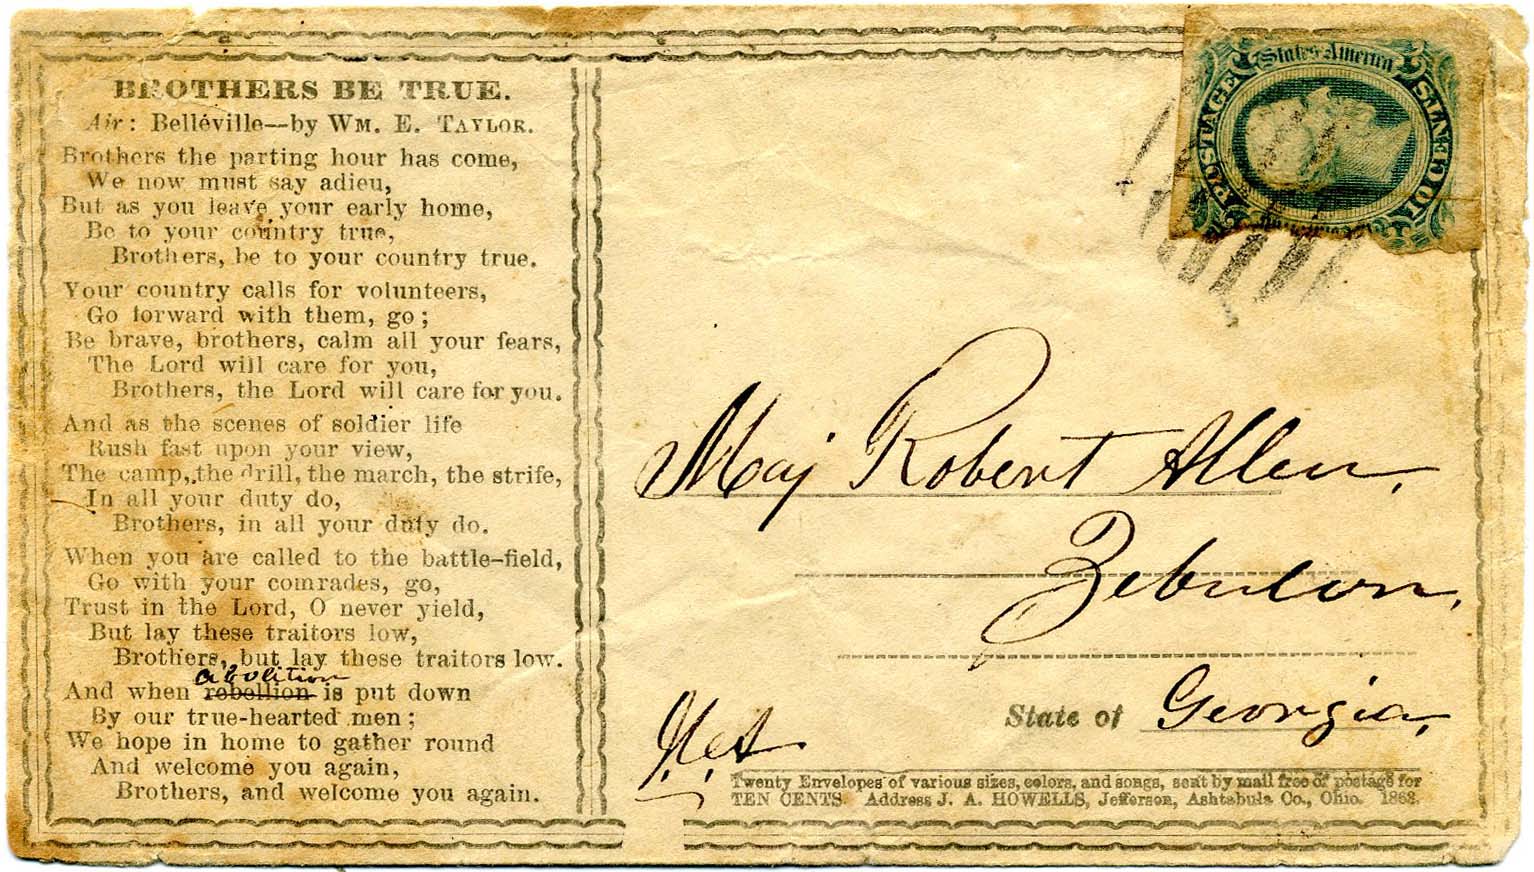 BROTHERS BE TRUE.
Air: Belléville—by WM. E. TAYLOR.
Brothers the parting hour has come,
We now must say adieu,
But as you leave your early home,
Be to your country true,
Brothers, be to your country true.
Your country calls for volunteers,
Go forward with them, go;
Be brave, brothers, calm all your fears,
The Lord will care for you,
Brothers, the Lord will care for you.
And as the scenes of soldier life
Rush fast upon your view,
The camp, the drill, the march, the strife,
In all your duty do,
Brothers, in all your duty do.
When you are called to the battle-field,
Go with your comrades, go,
Trust in the Lord, O never yield,
But lay these traitors low,
Brothers, but lay these traitors low.
abolition
And when rebellion is put down
By our true-hearted men;
We hope in home to gather round
And welcome you again,
Brothers, and welcome you again.
POSTAGE
States America
Maj Robert Allen,
Zebulon,
State of Georgia,
Twenty Envelopes of various sizes, colors, and songs, sent by mail free of postage for
TEN CENTS Address J. A. HOWELLS, Jefferson, Ashtabula Co., Ohio. 1862.